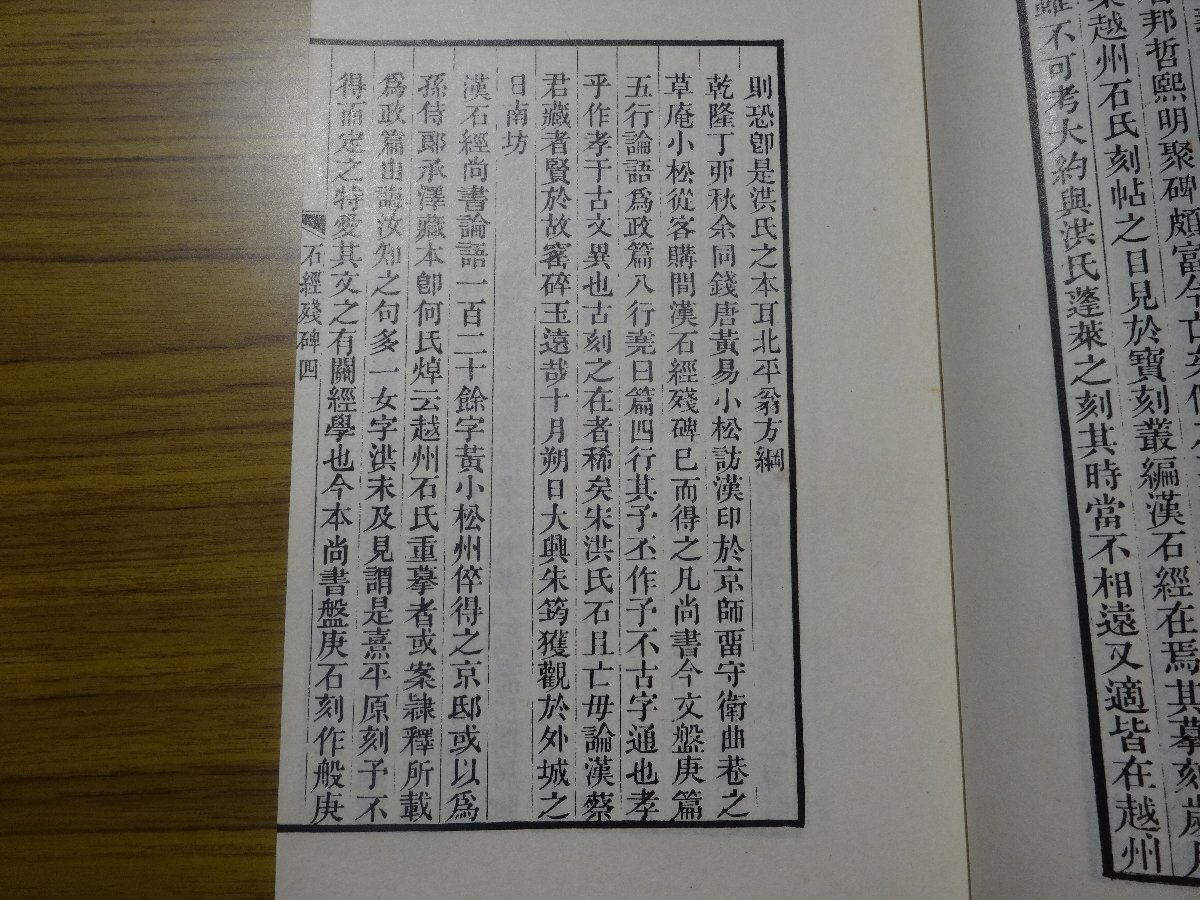 邦哲熙明聚碑頗富今亡
越州石氏刻帖之目見於寶刻叢編漢石經在焉其摹刻歲月
雖不可考大約與洪氏蓬萊之刻其時當不相遠又適皆在越州
則恐卽是洪氏之本耳北平翁方綱
乾隆丁丣秋余同錢唐黃易小松訪漢印於京師畱守衛曲巷之
草庵小松從客購間漢石經殘碑已而得之凡尚書今文盤庚篇
五行論語爲政篇八行堯曰篇四行其予丕作予不古字通也孝
乎作孝于古文異也古刻之在者稀矣宋洪氏石且亡毋論漢蔡
君藏者賢於故窰碎玉遠哉十月朔日大興朱筠獲觀於外城之
日南坊
漢石經尚書論語一百二十餘字黃小松州倅得之京邸或以爲
孫侍郎承澤藏本卽何氏焯云越州石氏重摹者或案隷釋所載
爲政篇由誨汝知之句多一女字洪未及見謂是熹平原刻予不
得而定之特愛其文之有關經學也今本尚書盤庚石刻作般庚
石經殘碑 四